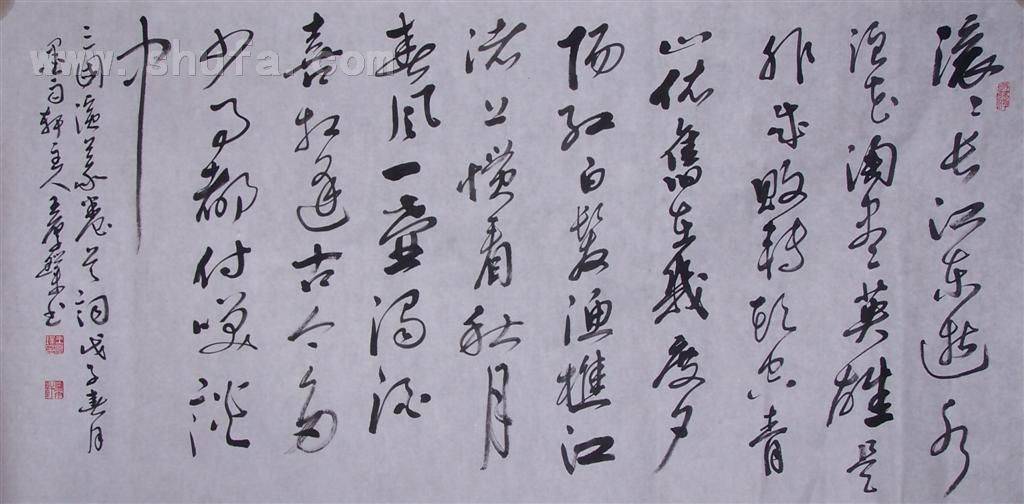 滚滚长江东逝水
浪花淘尽英雄是
非成败转头空青
山依舊在幾度夕
阳红白髮渔樵江
渚上惯看秋月
春风一壶浊酒
喜相逢古今多
少事都付笑谈
中
三国演义卷首词戊子春月
主人王书
www.shufa.com